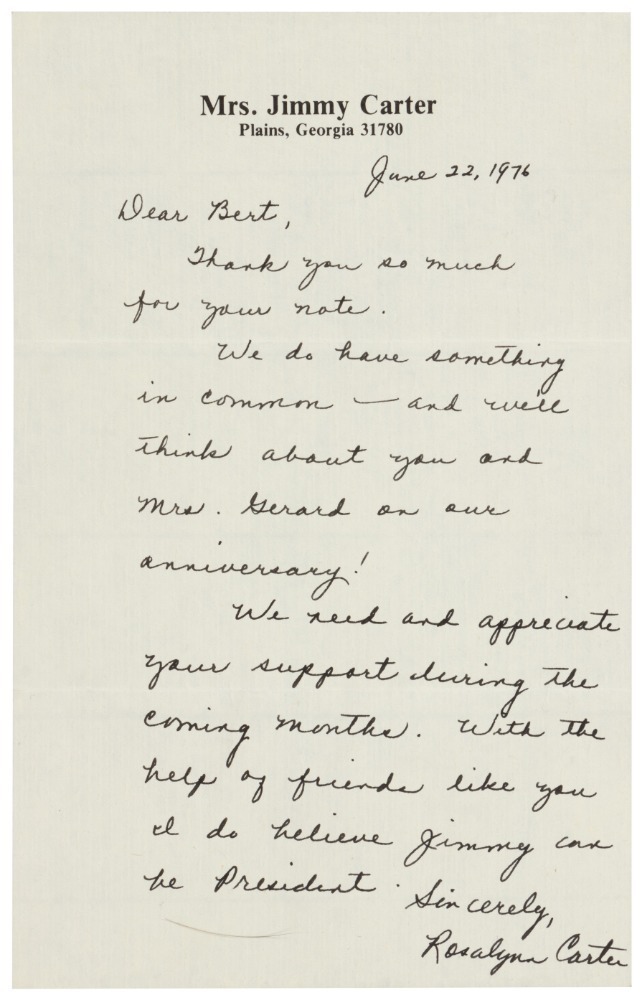 Mrs. Jimmy Carter
Plains, Georgia 31780
June 22, 1976
Dear Bert,
Thank you so much
for your note.
We do have something
in common — and we'll
think about you and
Mrs. Gerard on our
anniversary!
We need and appreciate
your support during the
coming months. With the
help of friends like you
I do believe Jimmy can
be President.
Sincerely,
Rosalynn Carter